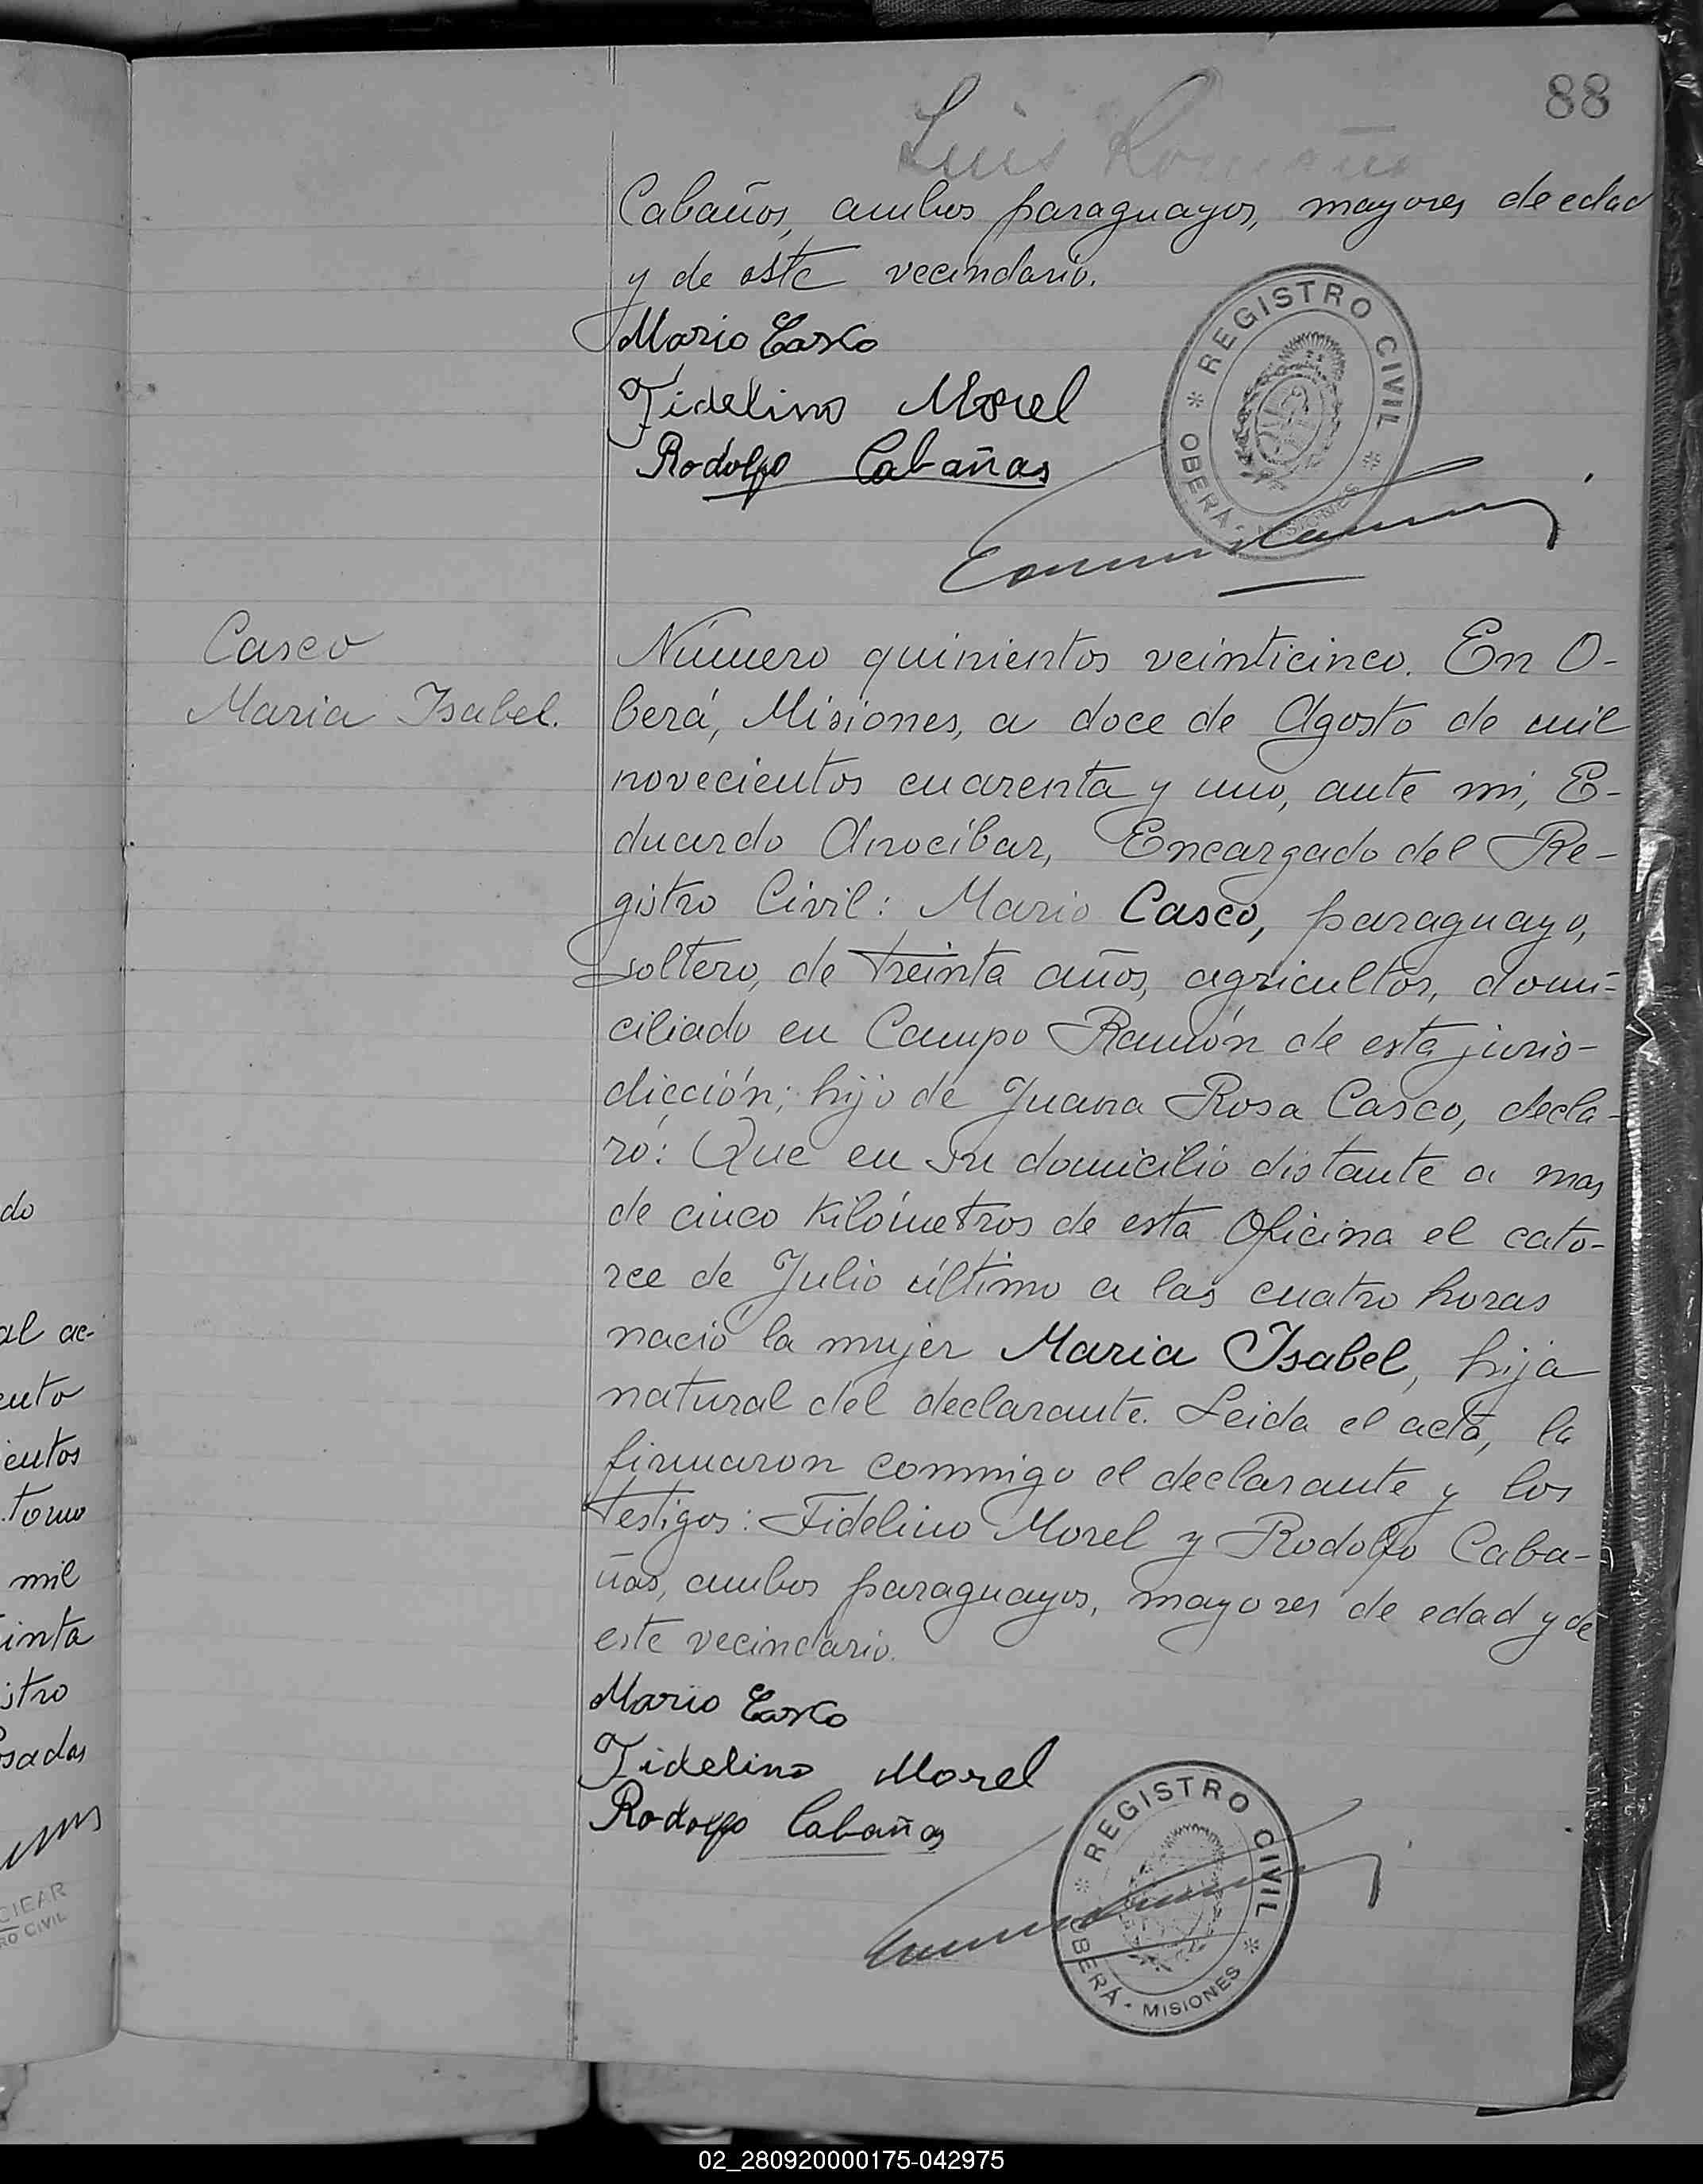 88
Luis
Cabaños, ambos paraguayos, mayores de edad
y de este vecindario.
Mario Casco
Fidelino Morel
Rodolfo Cabañas
REGISTRO CIVIL
OBERÁ - MISIONES
Casco
Maria Isabel.
Número quinientos veinticinco. En O-
berá, Misiones, a doce de Agosto de mil
novecientos cuarenta y uno, ante mi, E-
duardo Anocíbar, Encargado del Re-
gistro Civil: Mario Casco, paraguayo,
soltero, de treinta años, agricultor, domi-
ciliado en Campo Ramón de esta juris-
dicción; hijo de Juana Rosa Casco, decla-
ró: Que en su domicilio distante a mas
de cinco kilómetros de esta Oficina el cato-
rce de Julio último a las cuatro horas
nació la mujer Maria Isabel, hija
natural del declarante. Leida el acta, la
firmaron conmigo el declarante y los
testigos: Fidelino Morel y Rodolfo Caba-
ñas, ambos paraguayos, mayores de edad y de
este vecindario.
Mario Casco
Fidelino Morel
Rodolfo Cabañas
REGISTRO CIVIL
OBERÁ - MISIONES
do
al ac-
ento
ientos
tomo
mil
inta
istro
osadas
CIEAR
RO CIVIL
02_280920000175-042975